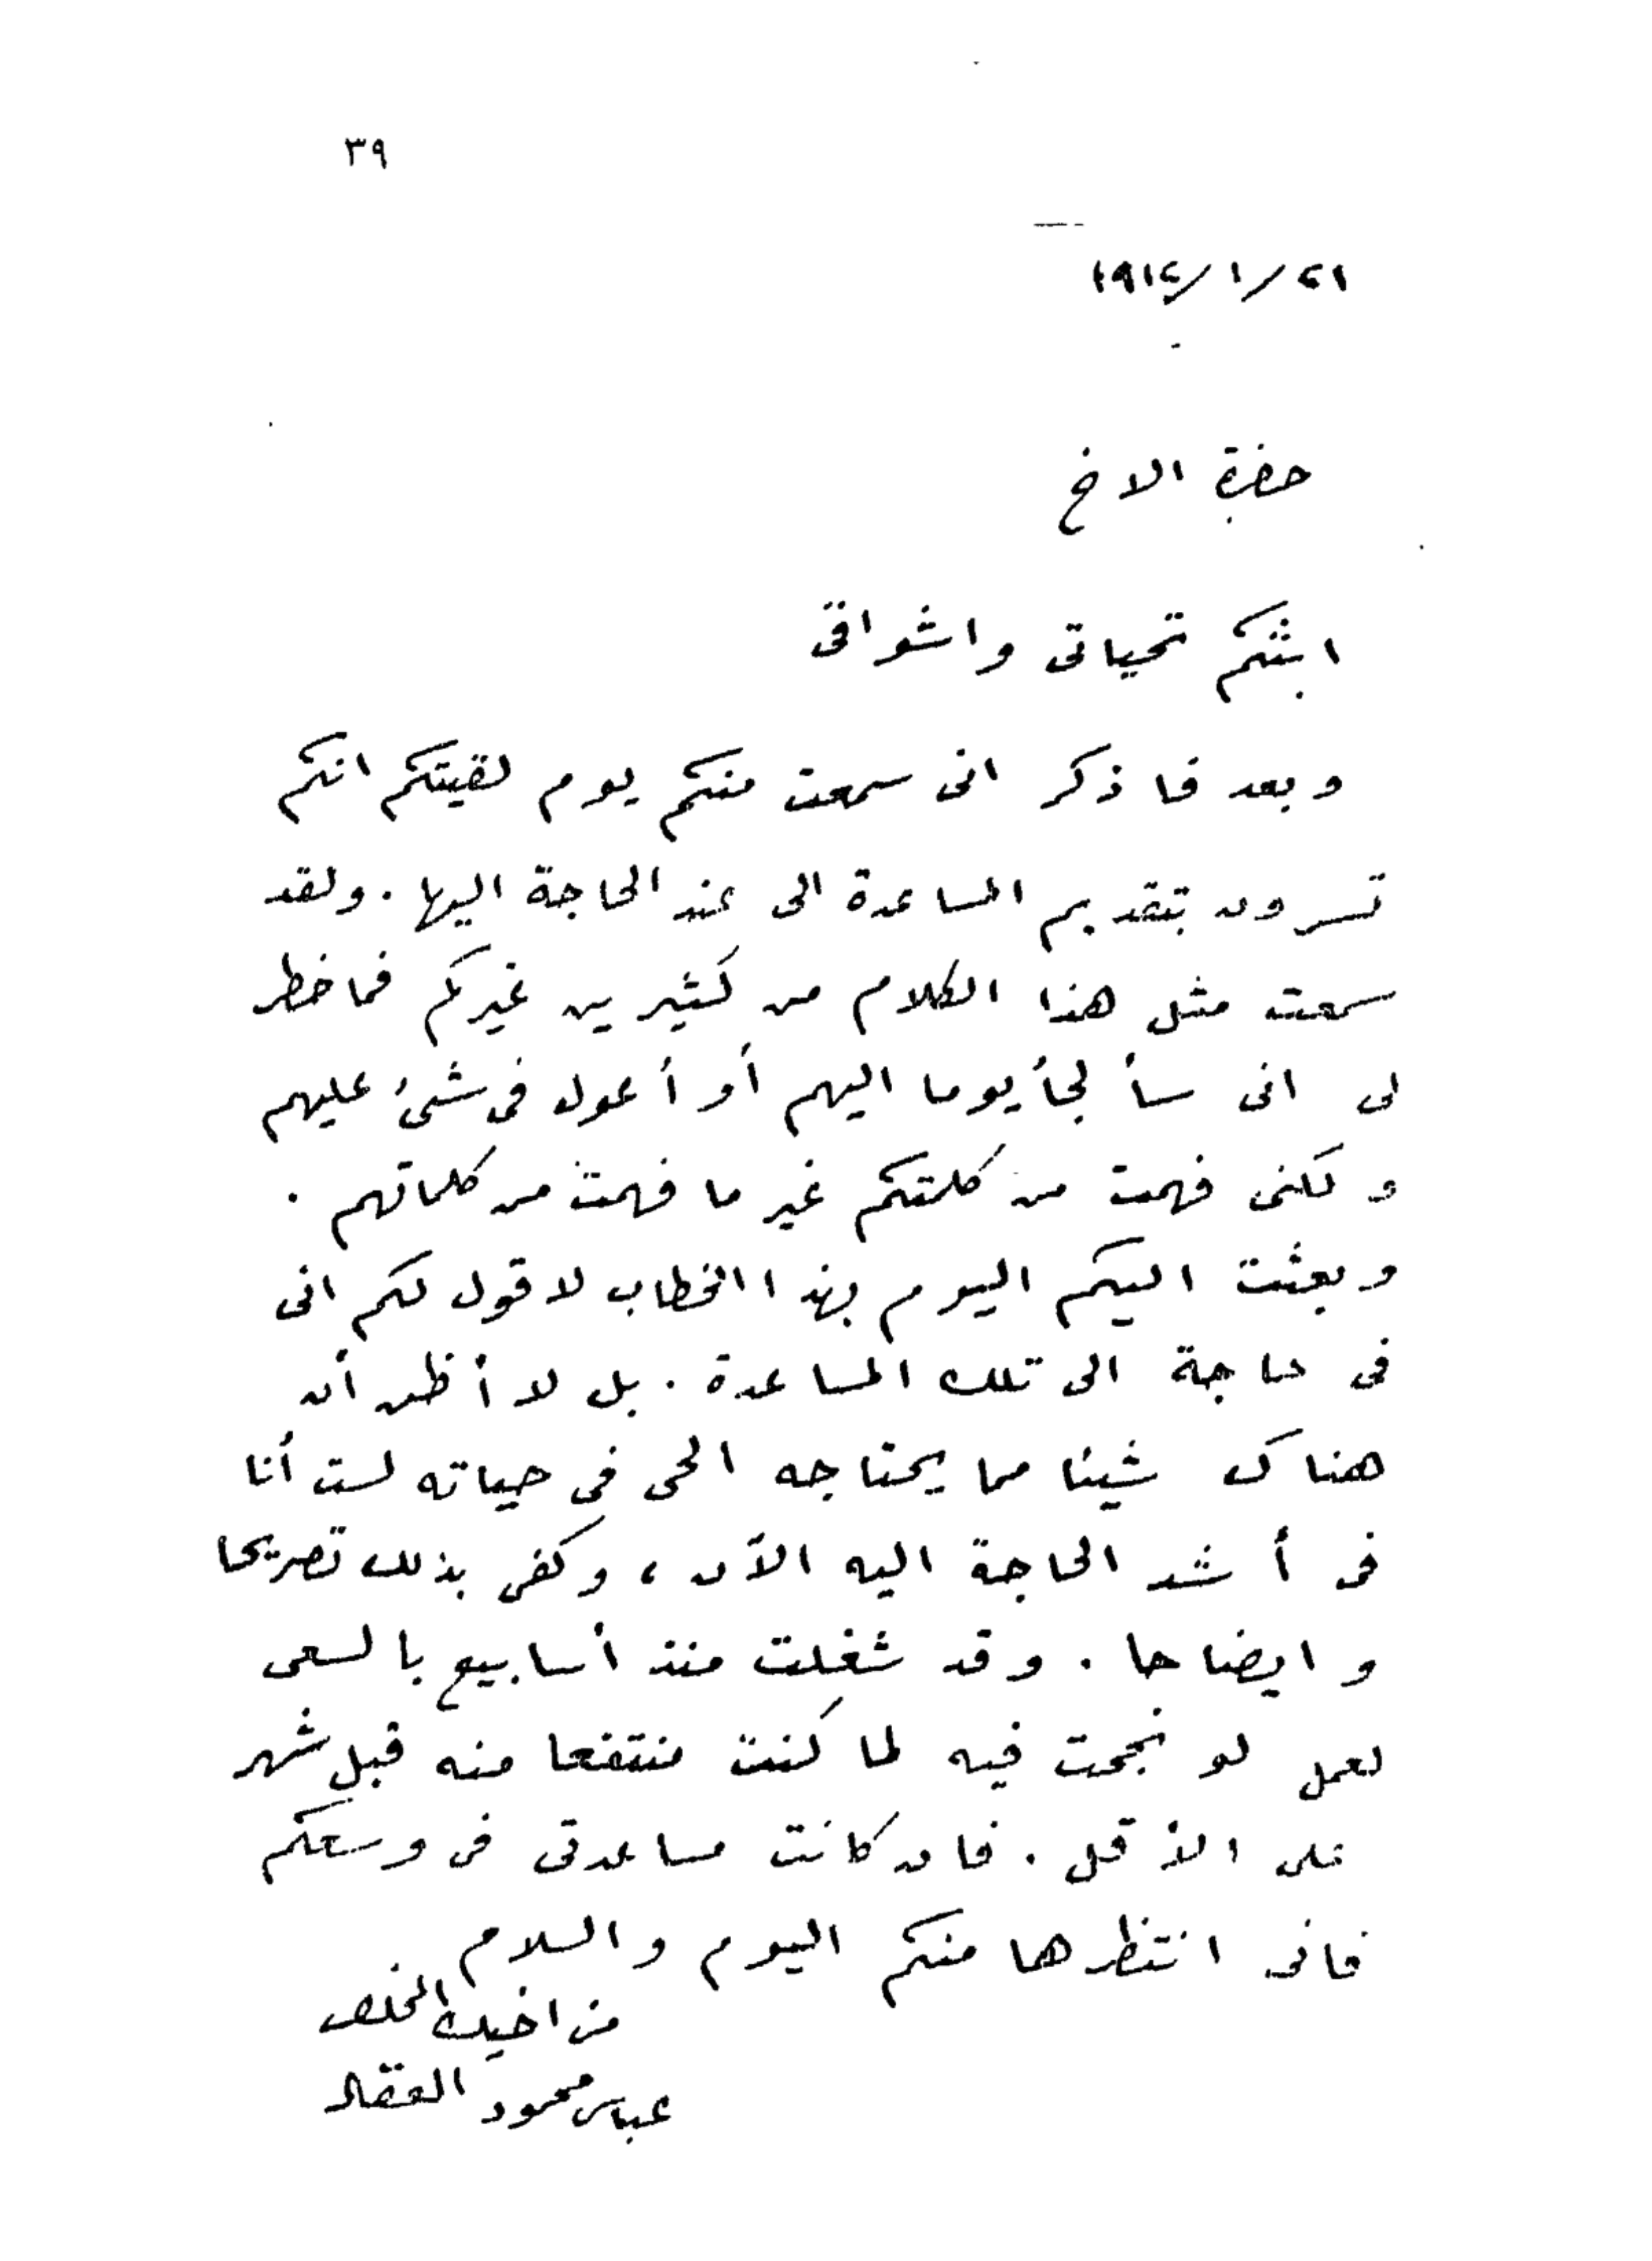 ٣٩
٢١/١/١٩١٤
حضرة الاخ
ابثكم تحياتى واشواقى
وبعد فاذكر انى سمعت منكم يوم لقيتكم انكم
تسرون بتقديم المساعدة الى عند الحاجة اليها. ولقد
سمعت مثل هذا الكلام من كثيرين غيركم فما خطر
لى انى سألجأ يوما اليهم أو أعول فى شىء عليهم
ولكنى فهمت من كلمتكم غير ما فهمت من كلماتهم.
وبعثت اليكم اليوم بهذا الخطاب لاقول لكم انى
فى حاجة الى تلك المساعدة. بل لا أظن أن
هناك شيئا مما يحتاجه الحى فى حياته لست أنا
فى أشد الحاجة اليه الآن، وكفى بذلك تصريحا
وايضاحا. وقد شغلت منذ أسابيع بالسعى
لعمل لو نجحت فيه لما كنت منتفعا منه قبل شهر
على الأقل. فان كانت مساعدتى فى وسعكم
فانى انتظرها منكم اليوم والسلام
من اخيك المخلص
عباس محمود العقاد